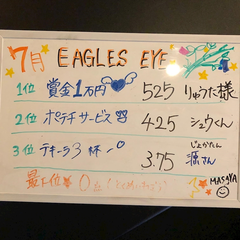 7月 EAGLES EYE
1位 賞金1万円 525 りゅうた様
2位 ポテチサービス 425 シュウくん
じょかたくん
3位 テキーラ3杯 3.75 源さん
最下位 0位
MASAYA